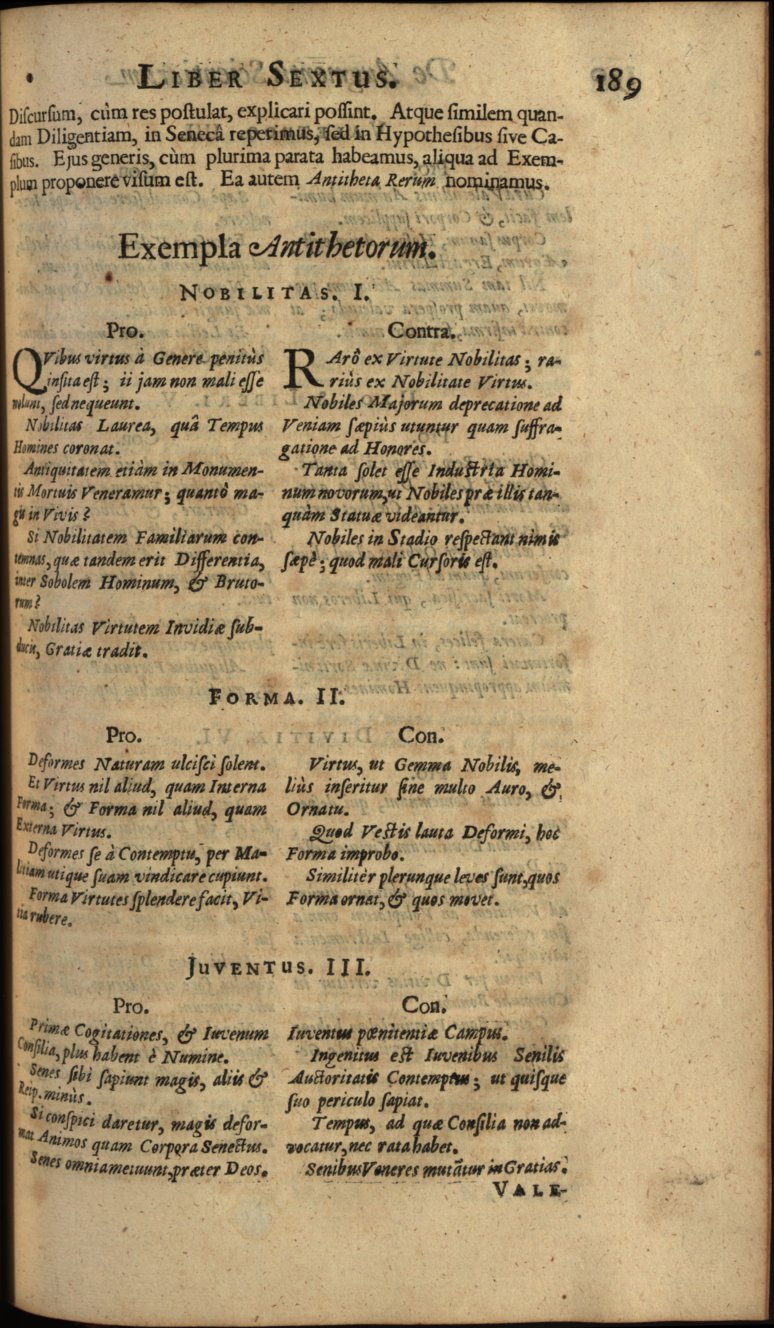 LIBER SEXTUS.
189
Discursum, cùm res postulat, explicari possint. Atque similem quan-
dam Diligentiam, in Senecâ reperimus, sed in Hypothesibus sive Ca-
sibus. Ejus generis, cùm plurima parata habeamus, aliqua ad Exem-
plum proponere visum est. Ea autem Antitheta Rerum nominamus.
Exempla Antithetorum.
NOBILITAS. I.
Pro.
QVibus virtus à Genere penitùs
insita est; ii jam non mali esse
nolunt, sed nequeunt.
Nobilitas Laurea, quâ Tempus
Homines coronat.
Antiquitatem etiàm in Monumen-
tis Mortuis Veneramur; quantò ma-
gis in Vivis?
Si Nobilitatem Familiarum con-
temnas, quæ tandem erit Differentia,
inter Sobolem Hominum, & Bruto-
rum?
Nobilitas Virtutem Invidiæ sub-
ducit, Gratiæ tradit.
Contra.
RArô ex Virtute Nobilitas; ra-
riùs ex Nobilitate Virtus.
Nobiles Majorum deprecatione ad
Veniam sæpiùs utuntur quam suffra-
gatione ad Honores.
Tanta solet esse Industria Homi-
num novorum, ut Nobiles præ illis tan-
quàm Statuæ videantur.
Nobiles in Stadio respectant nimis
sæpè; quod mali Cursoris est.
FORMA. II.
Pro.
Deformes Naturam ulcisci solent.
Et Virtus nil aliud, quam Interna
Forma; & Forma nil aliud, quam
Externa Virtus.
Deformes se à Contemptu, per Ma-
litiam utique suam vindicare cupiunt.
Forma Virtutes splendere facit, Vi-
tia rubere.
Con.
Virtus, ut Gemma Nobilis, me-
liùs inseritur sine multo Auro, &
Ornatu.
Quod Vestis lauta Deformi, hoc
Forma improbo.
Similitèr plerunque leves sunt, quos
Forma ornat, & quos movet.
JUVENTUS. III.
Pro.
Primæ Cogitationes, & Iuvenum
Consilia, plus habent è Numine.
Senes sibi sapiunt magis, aliis &
Reip. minùs.
Si conspici daretur, magis defor-
mat Animos quam Corpora Senectus.
Senes omnia metuunt, præter Deos.
Con.
Iuventus pœnitentiæ Campus.
Ingenitus est Iuvenibus Senilis
Auctoritatis Contemptus; ut quisque
suo periculo sapiat.
Tempus, ad quæ Consilia non ad-
vocatur, nec rata habet.
Senibus Veneres mutātur in Gratias.
VALE-